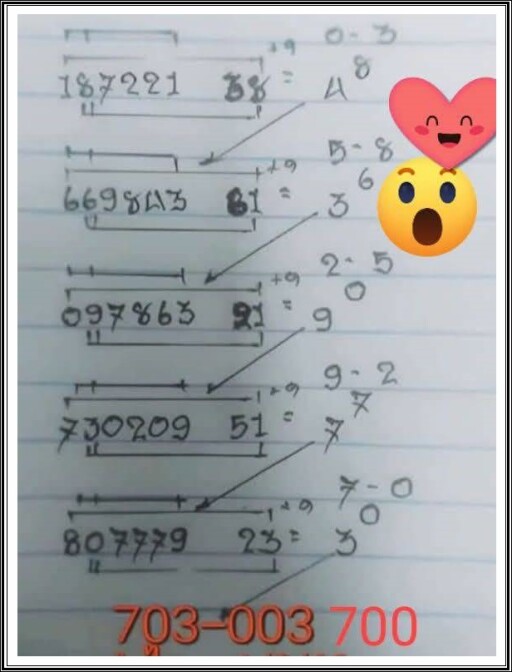 0-3
+9
8
187221 38 = 4
5-8
+9
6
669843 61 = 3
2-5
+9
0
097863 91 = 9
9-2
+9
7
730209 51 = 7
7-0
+9
0
807779 23 = 3
703-003 700